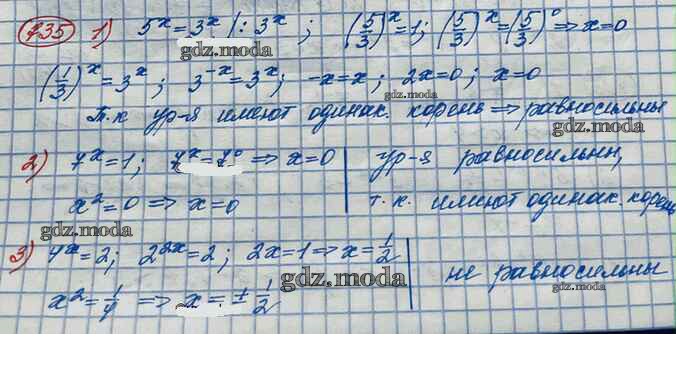 735 1) 5ˣ = 3ˣ |: 3ˣ ; (5/3)ˣ = 1; (5/3)ˣ = (5/3)⁰ ⇒ x = 0
gdz.moda
gdz.moda
(1/3)ˣ = 3ˣ ; 3⁻ˣ = 3ˣ; -x = x; 2x = 0; x = 0
gdz.moda
Т.к ур-я имеют одинак. корень ⇒ равносильны
gdz.moda
2) 7ˣ = 1; 7ˣ = 7⁰ ⇒ x = 0 | ур-я равносильны,
x² = 0 ⇒ x = 0 | т.к. имеют одинак. корень
gdz.moda
gdz.moda
3) 4ˣ = 2; 2²ˣ = 2; 2x = 1 ⇒ x = 1/2 | не равносильны
gdz.moda
gdz.moda
x² = 1/4 ⇒ x = ± 1/2